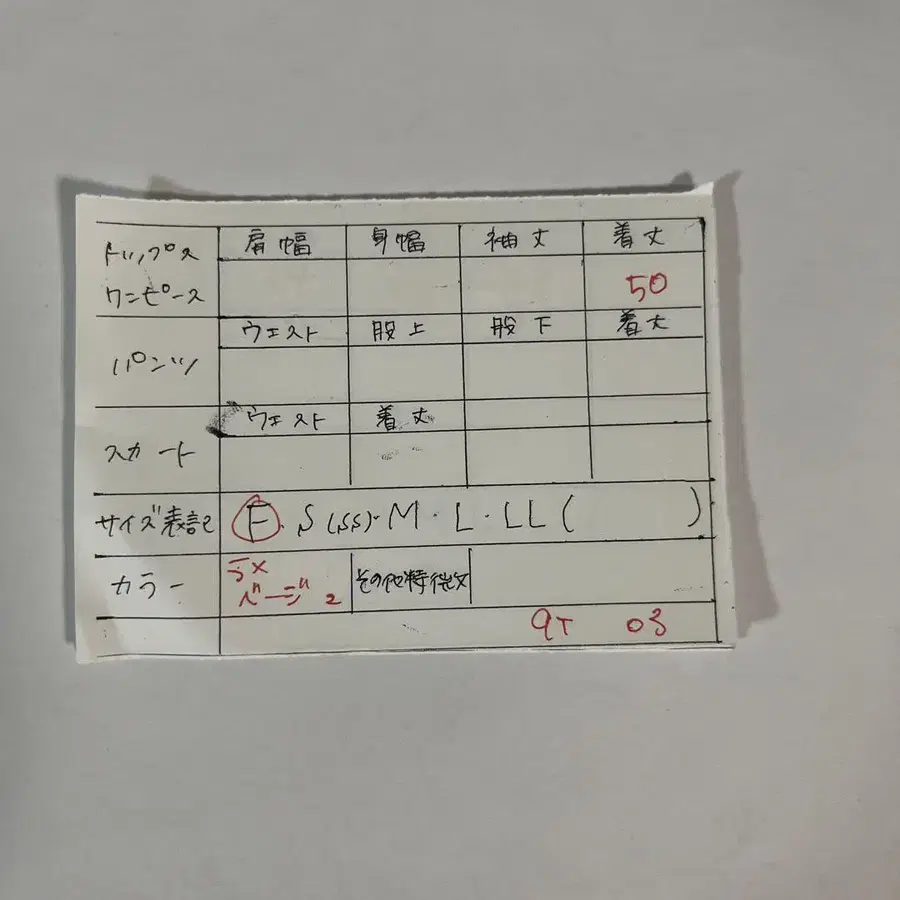 トップス 肩幅 身幅 袖丈 着丈
ワンピース 50
パンツ ウエスト 股上 股下 着丈
スカート ウエスト 着丈
サイズ表記 F・S(SS)・M・L・LL( )
カラー ラメ ベージュ その他特徴文
9T 03